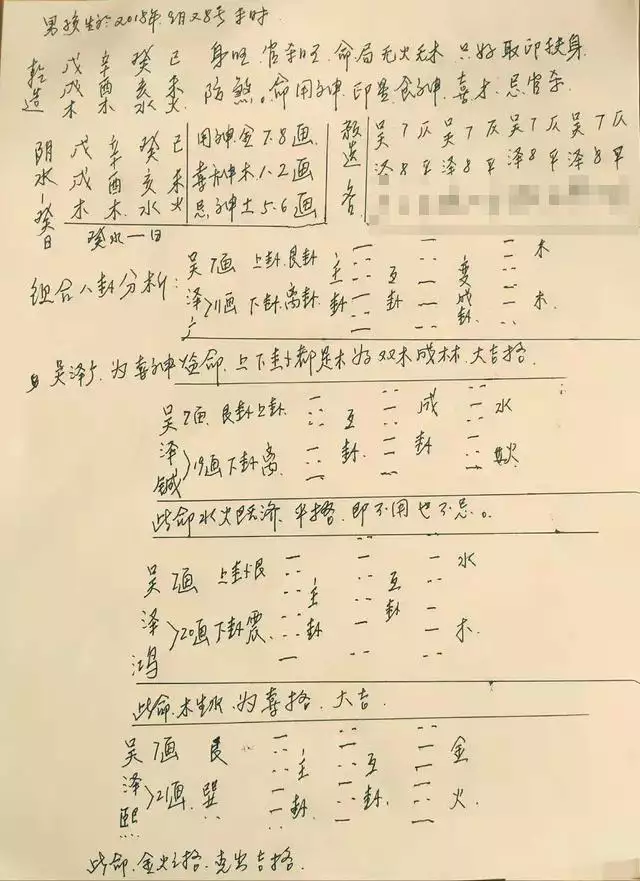 男孩生於2018年9月28号未时
乾造 戊戌木 辛酉木 癸亥水 己未火
身旺 官杀旺 命局无火无木 只好取印扶身
防煞。命用神 印星食神 喜才 忌官杀
阴水1癸日
戊 辛 癸 己
戌 酉 亥 未
木 木 水 火
癸水一日
用神金7.8画
喜神木1.2画
忌神土5.6画
名
吴7 吴7 吴7 吴7
泽8平 泽8平 泽8平 泽8平
组合八卦分析:
吴7画 上卦艮卦 主卦 互卦 变成卦 木
泽 11画 下卦离卦 木
吴泽 为喜神 命 上下卦都是木好双木成林 大吉格.
吴7画 艮卦上卦 互卦 成卦 水
泽 19画下卦离 火
此命水火既济 平格 即不用也不忌。
吴7画 上卦艮 主卦 互卦 水
泽鸿 20画下卦震 木.
此命.木生水 为喜格 大吉.
吴7画 艮 主卦 互卦 金
泽熙 21画 巽 火.
此命.金火之格.克出吉格.